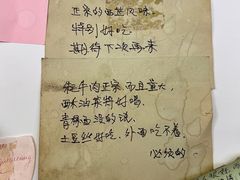 正宗的西藏风味
特别好吃
期待下次再来
牦牛肉正宗而且量大，
酥油茶特好喝，
青稞酒没的说，
土豆丝好吃，外面吃不着。
必须的